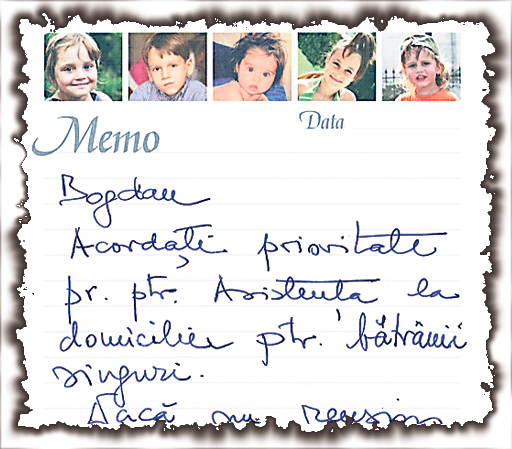 Data
Memo
Bogdan
Acordați prioritate
pr. ptr. Asistenta la
domiciliu ptr. bătrânii
singuri.
Dacă nu reusim